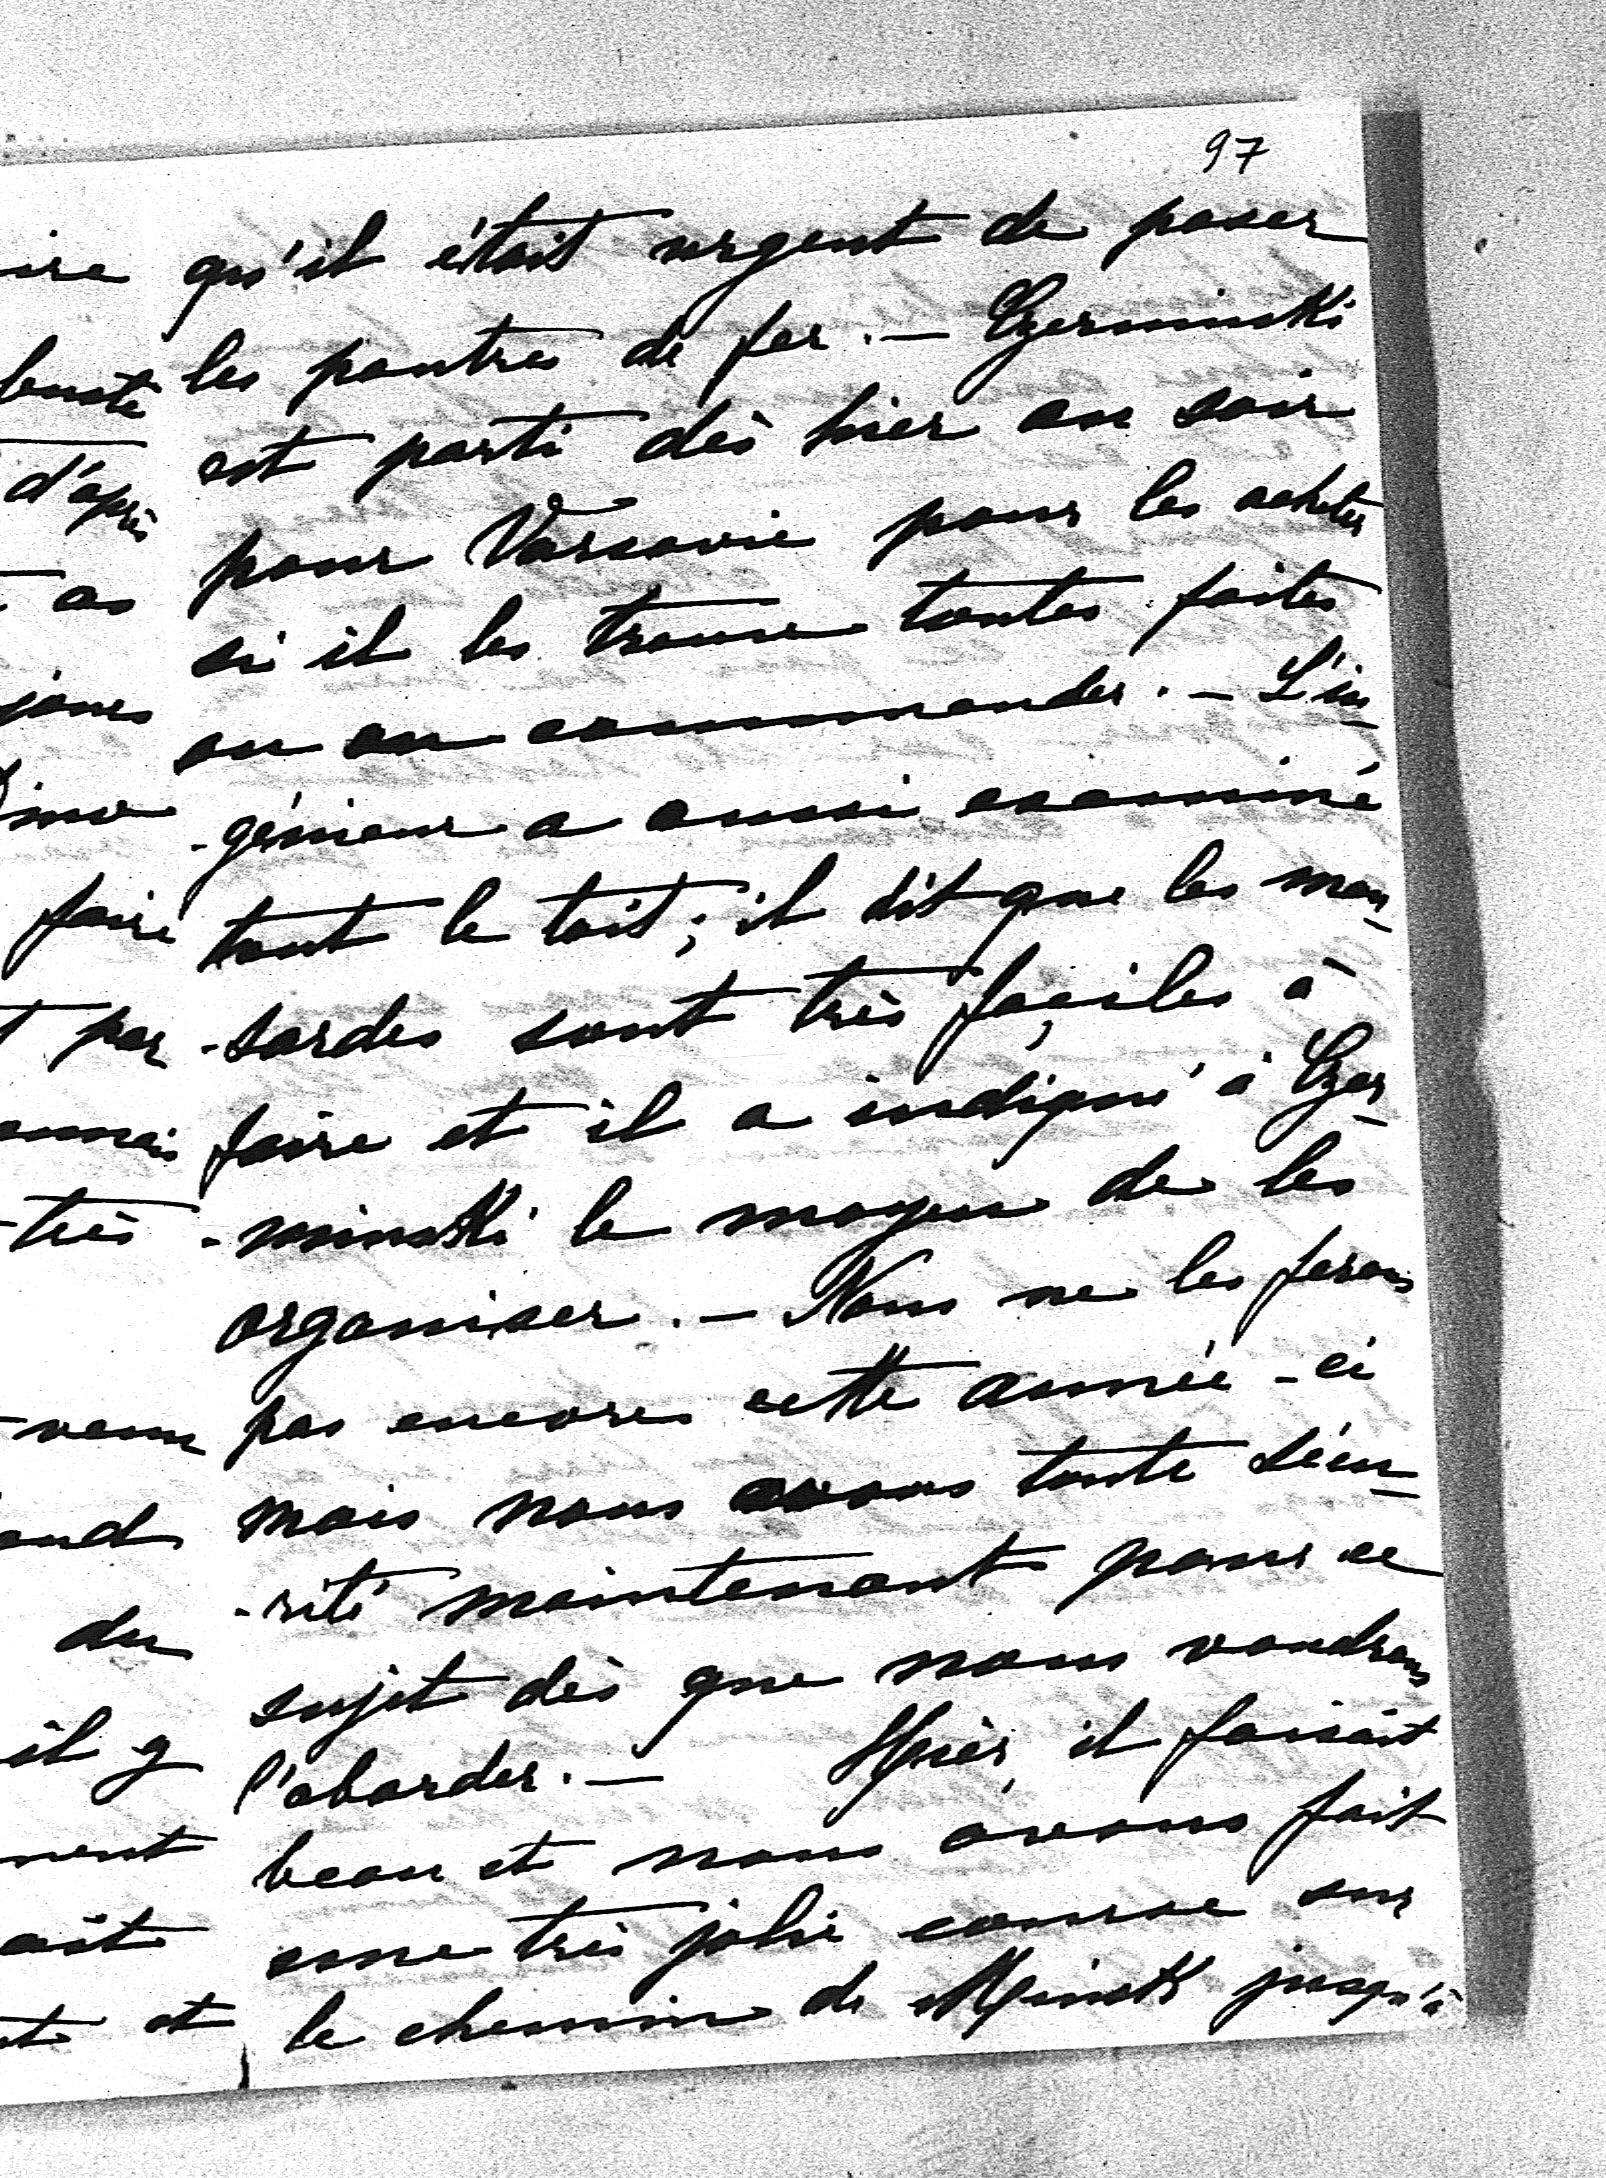 97
qu'il était urgent de poser
les poutres de fer. — Czerminski
est parti dès hier au soir
pour Varsovie pour les acheter
si il les trouve toutes faites
ou en commander. — L'in-
-génieur a aussi examiné
tout le toit; il dit que les man-
-sardes sont très façiles à
faire et il a indiqué à Czer-
-minski le moyen de les
organiser. — Nous ne les ferons
pas encore cette année-ci
mais nous avons toute sécu-
-rité maintenant pour ce
sujet dès que nous voudrons
l'aborder. — Hier, il faisait
beau et nous avons fait
une très jolie course sur
le chemin de Minsk jusqu'à
buste
d'après
as
joues
faire
par
très
venu
du
il y
et